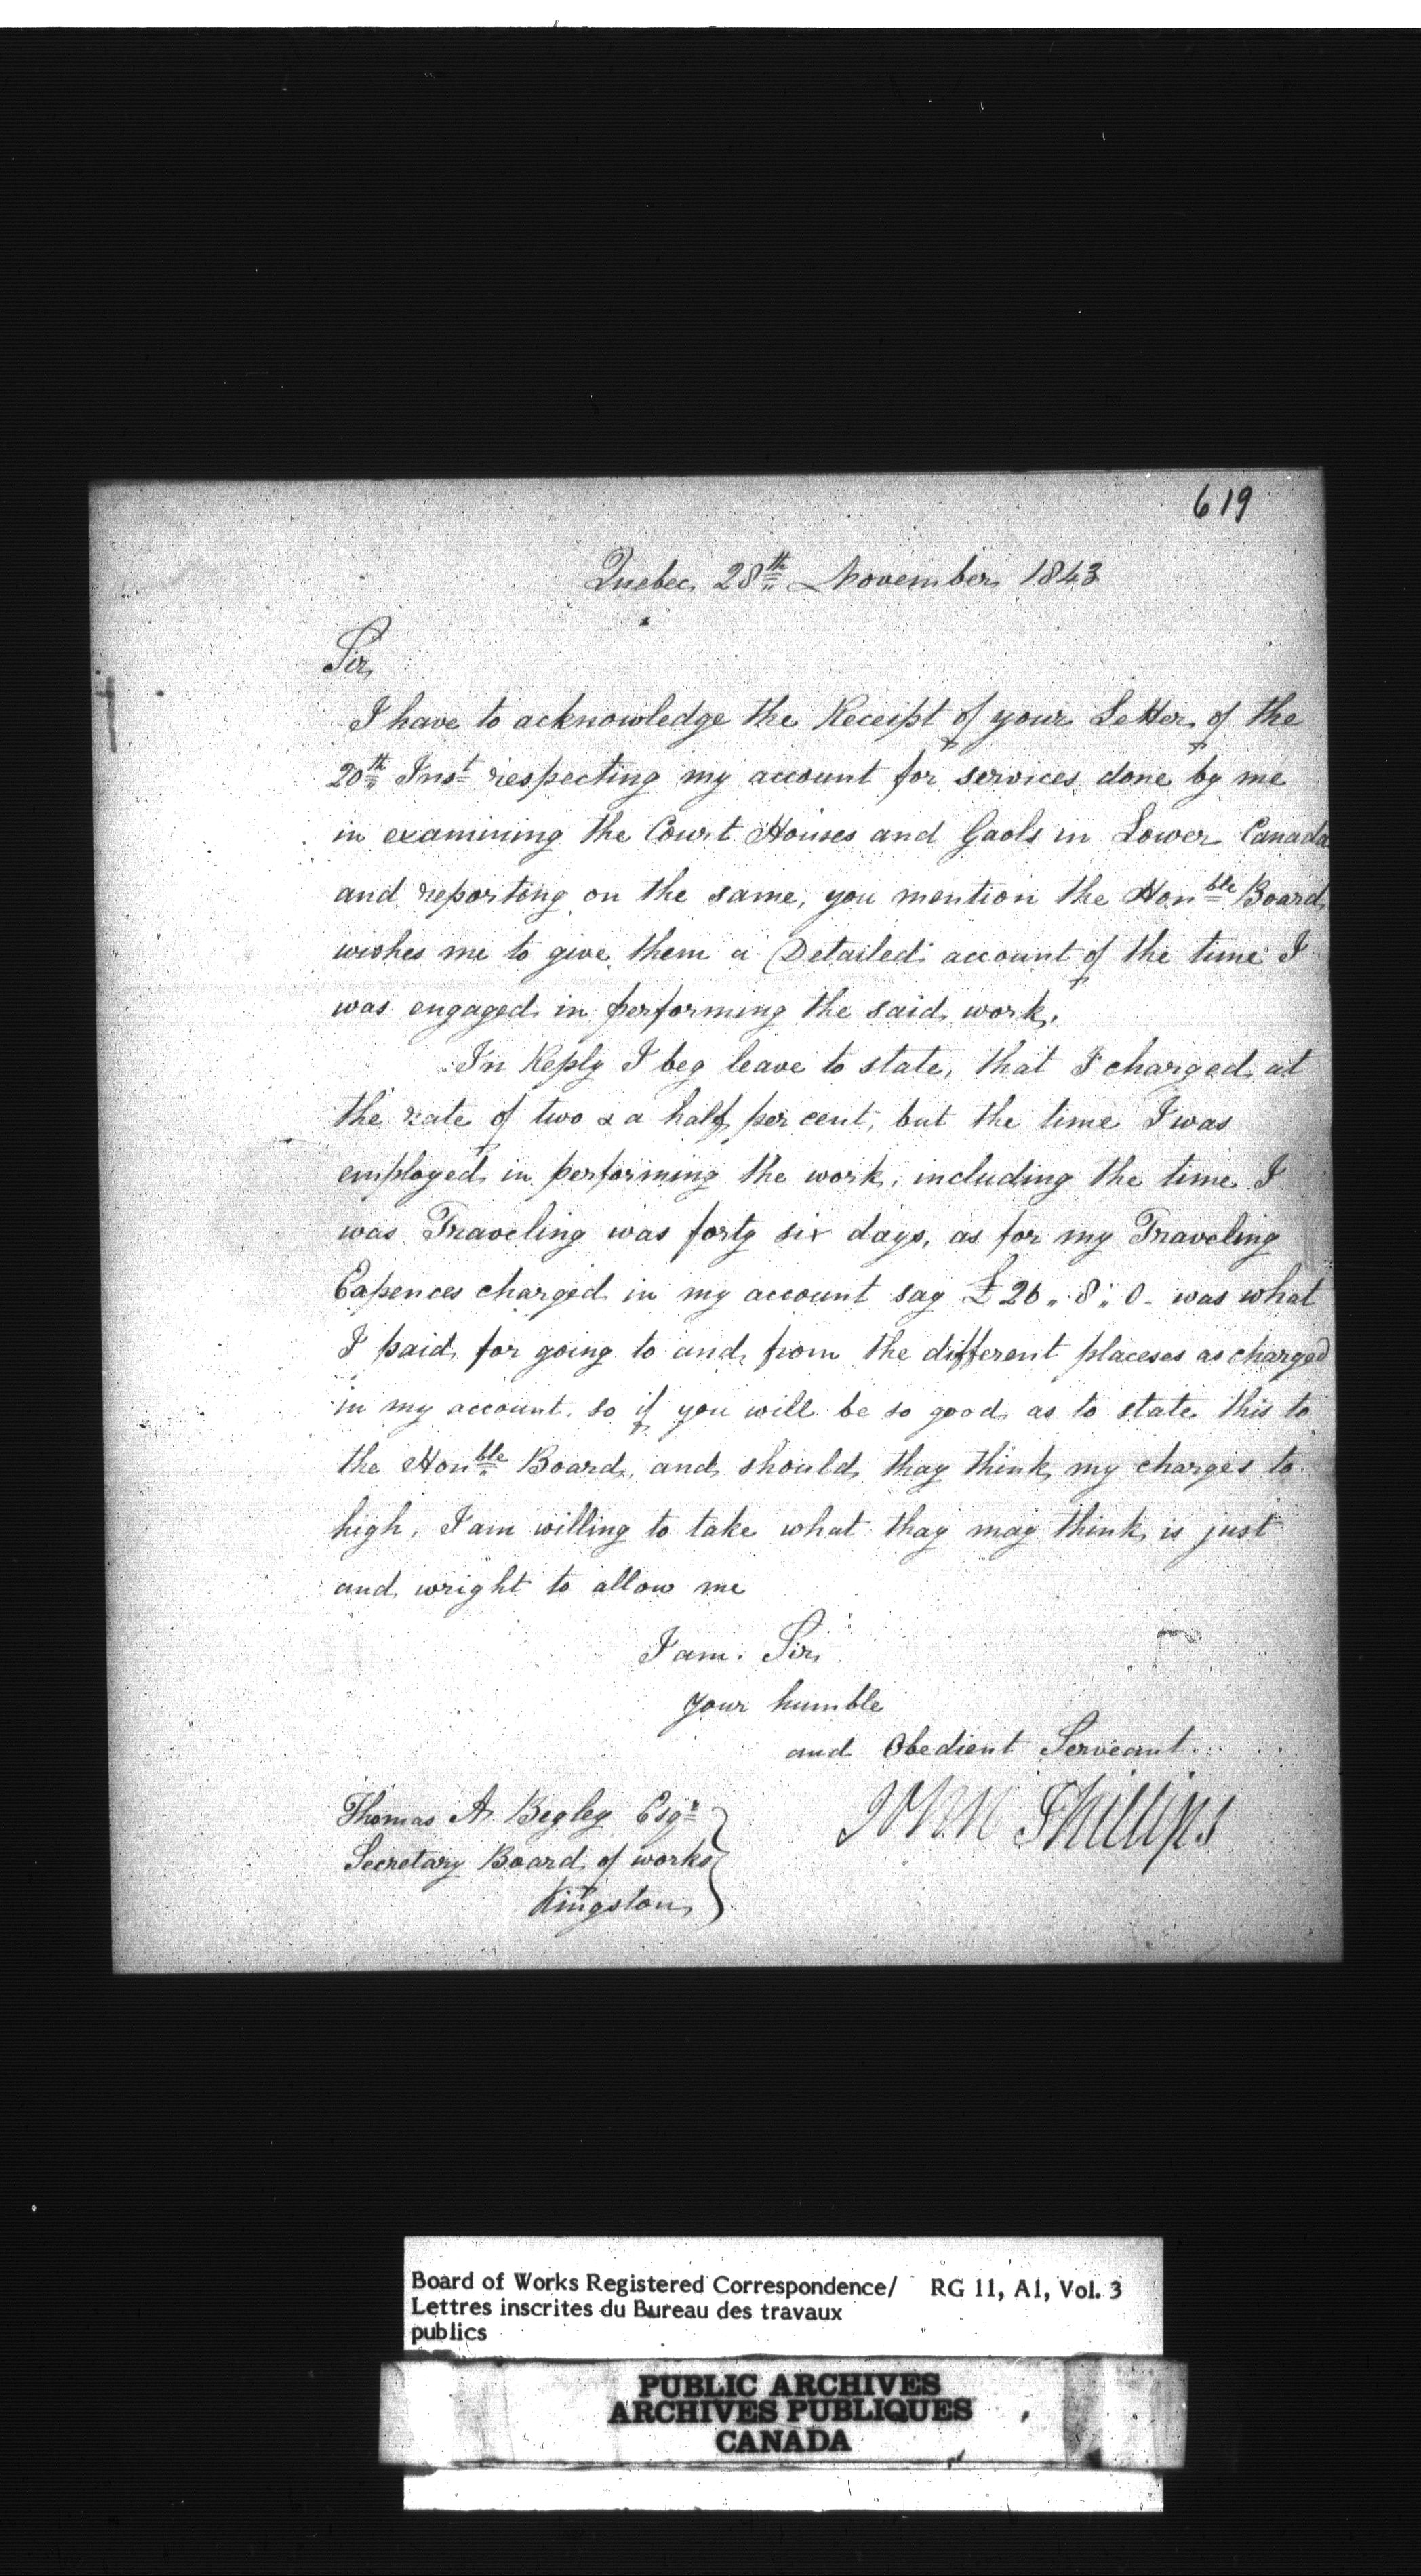 619
Quebec 28th November 1843
Sir
I have to acknowledge the Receipt of your Letter of the
20th Inst respecting my account for services done by me
in examining the Court Houses and Gaols in Lower Canada
and reporting on the same, you mention the Honble Board
wishes me to give them a Detailed account of the time I
was engaged in performing the said work.
In Reply I beg leave to state, that I charged at
the rate of two & a half per cent, but the time I was
employed in performing the work, including the time I
was Traveling was forty six days, as for my Traveling
Expences charged in my account say £26 „ 8 „ 0 - was what
I paid for going to and from the different placeses as charged
in my account. so if you will be so good as to state this to
the Honble Board, and should thay think my charges to
high, I am willing to take what thay may think is just
and wright to allow me
I am. Sir
your humble
and Obedient Serveant
John Phillips
Thomas A Begley Esqr
Secretary Board of works
Kingston
Board of Works Registered Correspondence/ RG 11, A1, Vol. 3
Lettres inscrites du Bureau des travaux
publics
PUBLIC ARCHIVES
ARCHIVES PUBLIQUES
CANADA